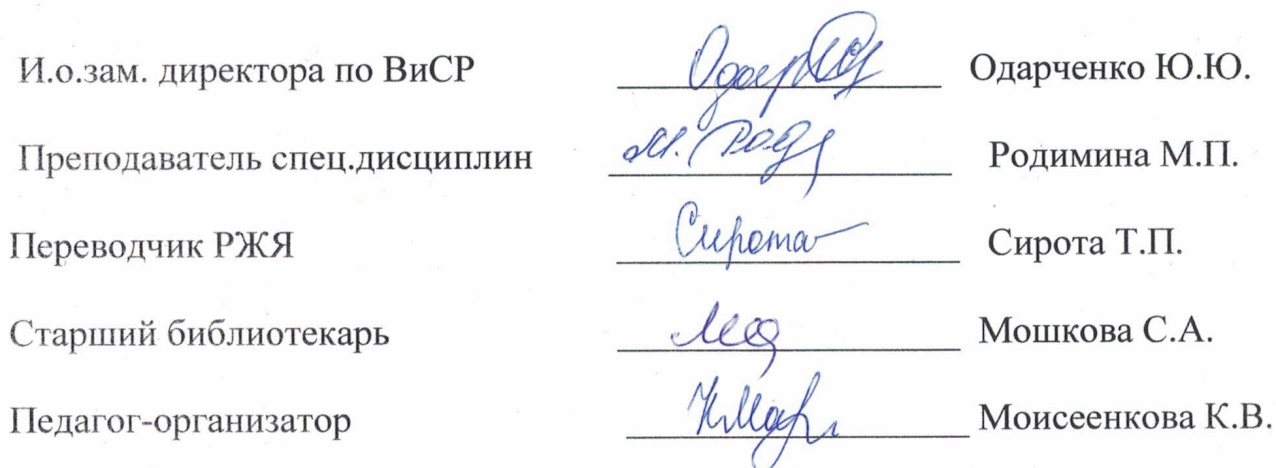 И.о.зам. директора по ВиСР Одарченко Ю.Ю.
Преподаватель спец.дисциплин М. Род Родимина М.П.
Переводчик РЖЯ Сирота Сирота Т.П.
Старший библиотекарь Мошкова С.А.
Педагог-организатор Моисеенкова К.В.